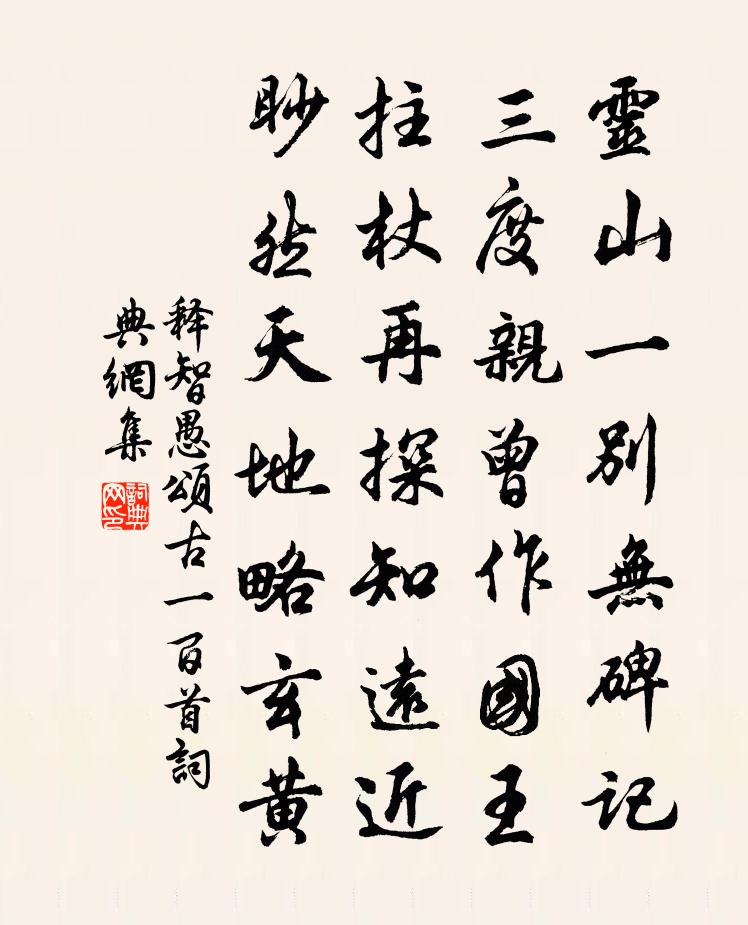 靈山一別無碑記
三度親曾作國王
拄杖再探知遠近
眇然天地略玄黄
释智愚頌古一百首詞
典網集
詞典网印